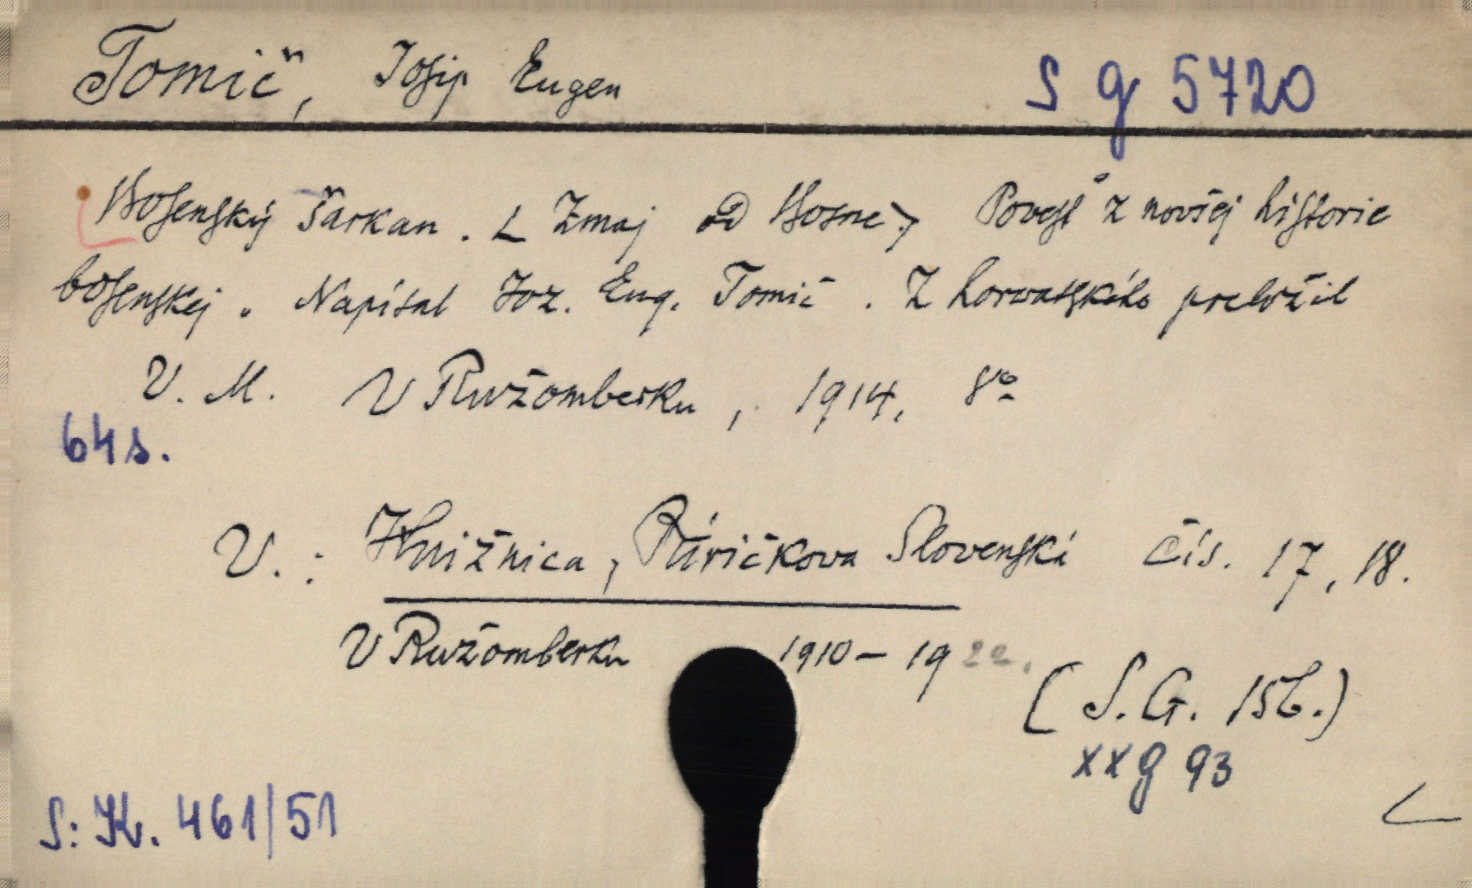 Tomič, Josip Eugen S g 5720
Bosenský šarkan. (Zmaj od Bosne) Povesť z novšej historie
bosenskej. Napísal Joz. Eug. Tomič. Z horvatského preložil
V. M. V Ružomberku, 1914, 8º
64 s.
V.: Knižnica, Páričkova Slovenská čís. 17, 18.
V Ružomberku 1910 – 1922.
(S. G. 156.)
xx g 93
S: K. 461/51